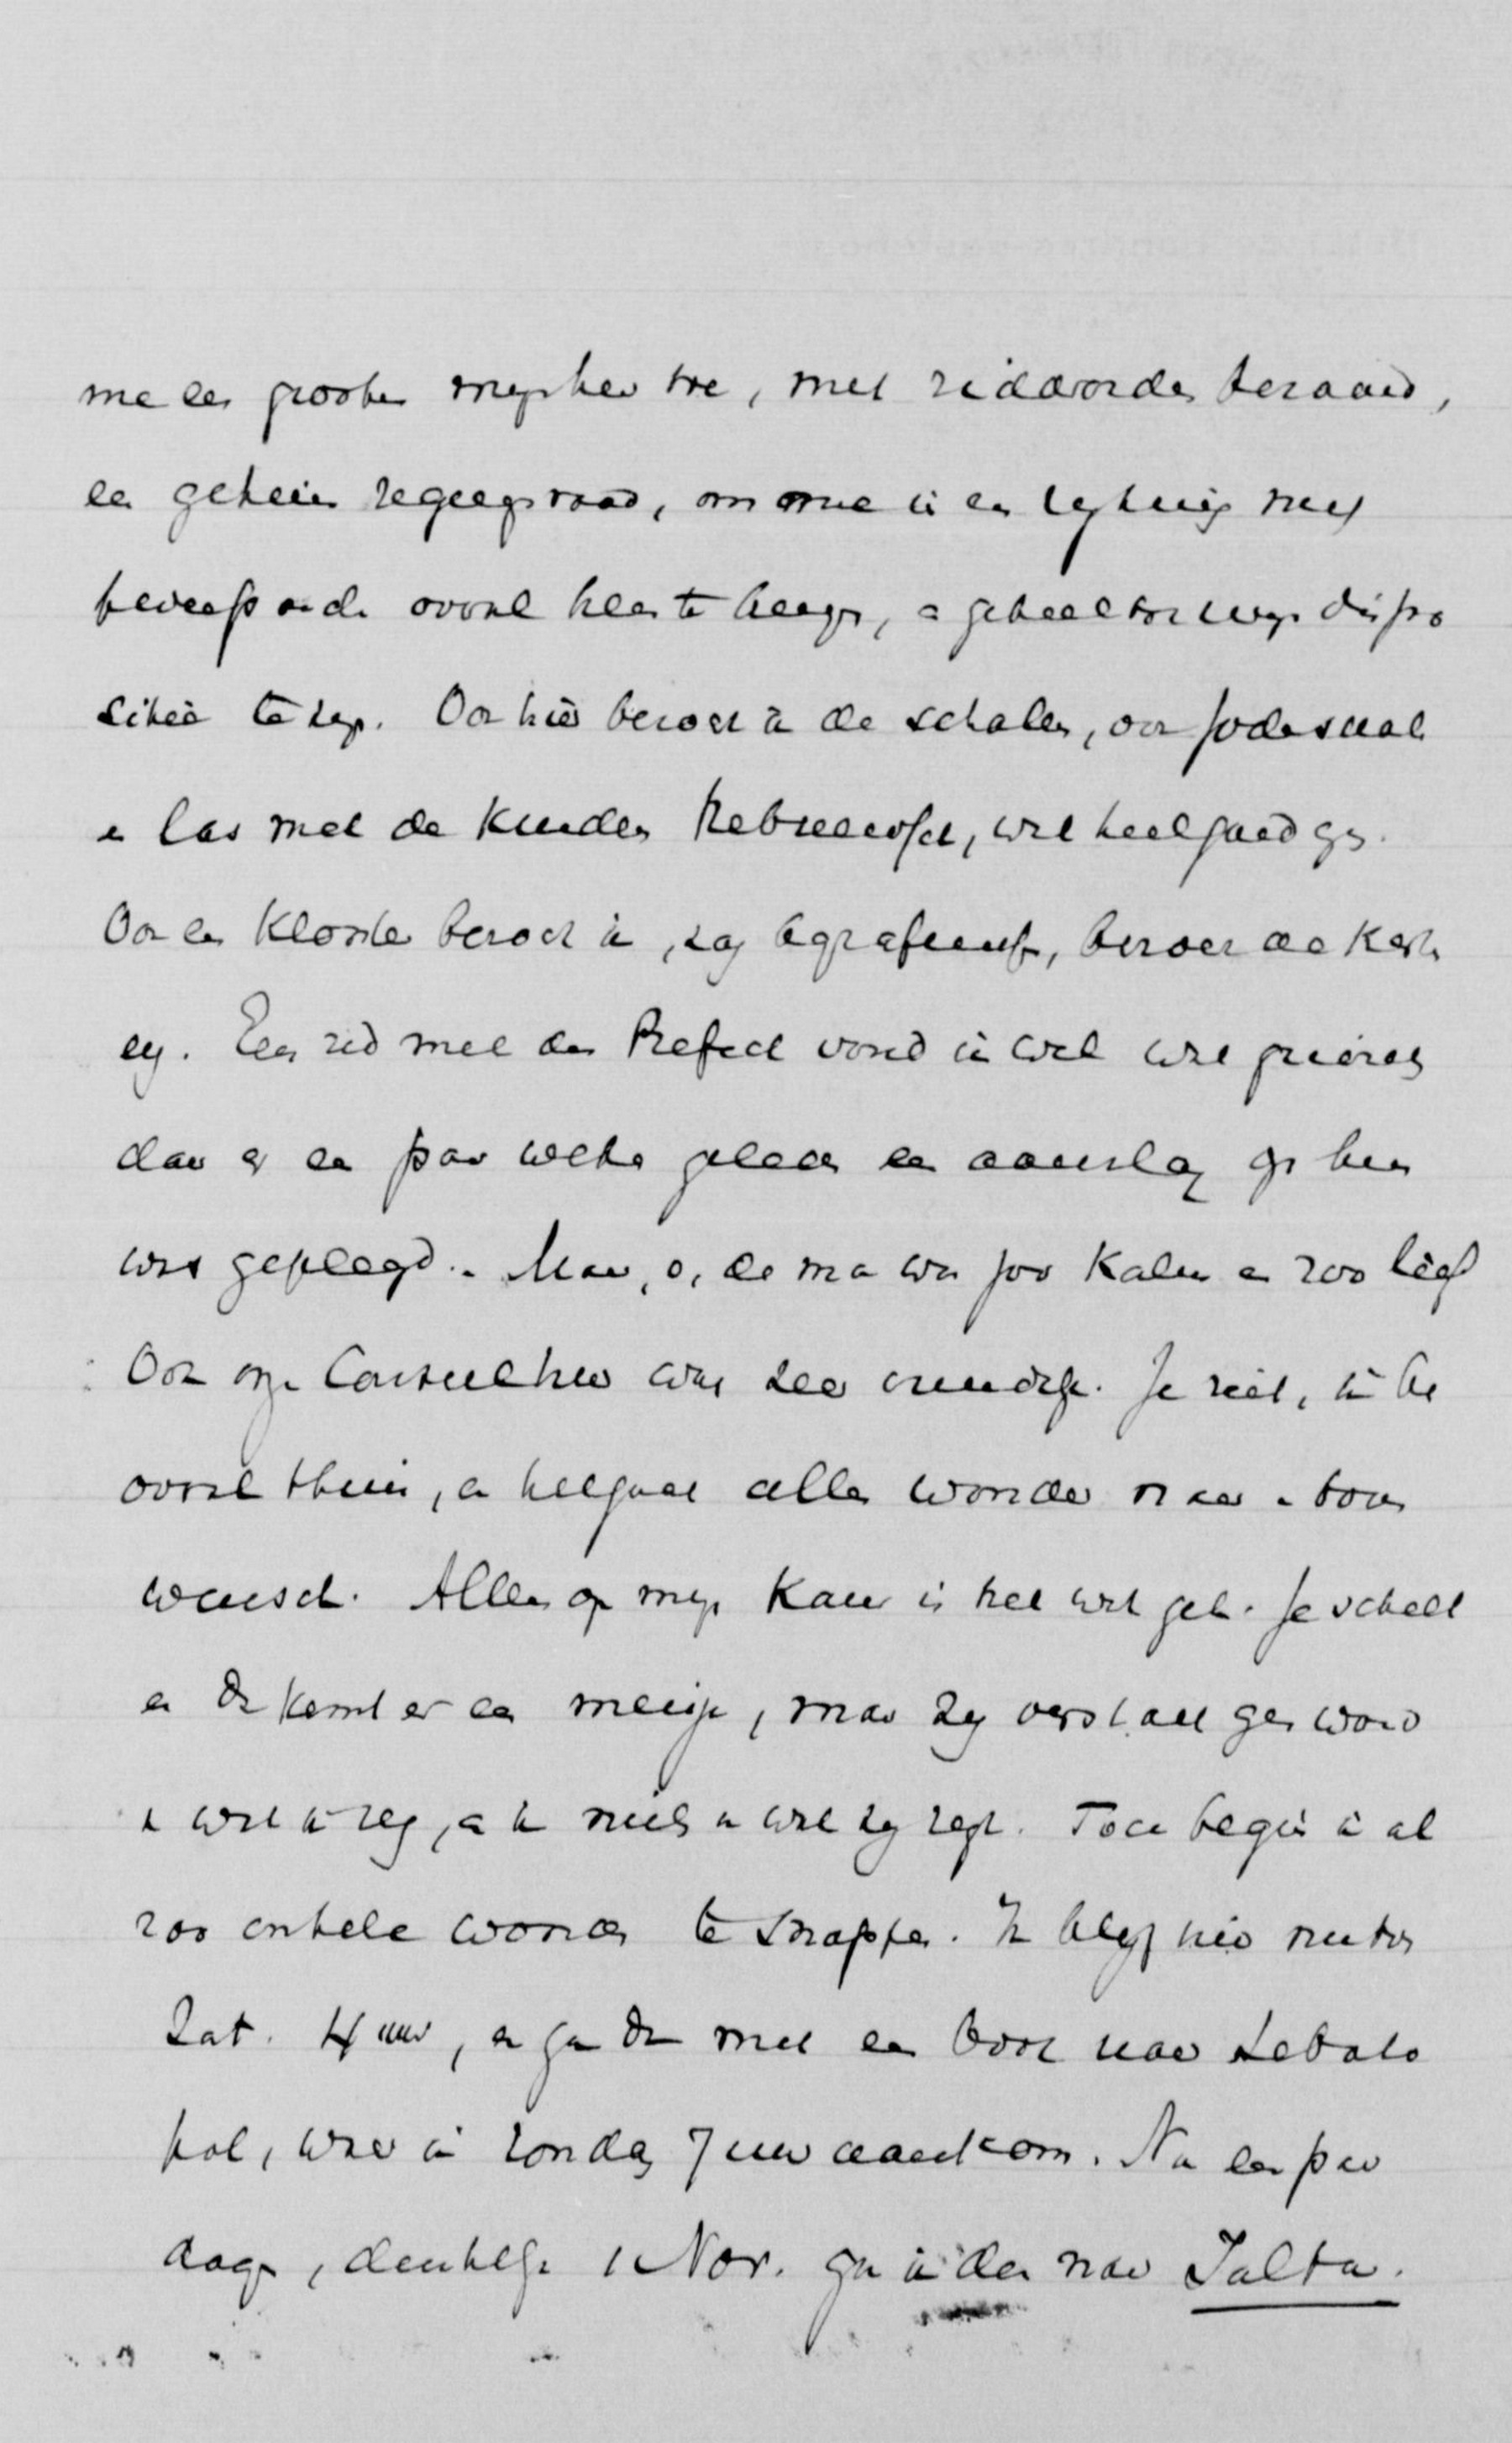 me een grooten mijnheer toe, met ridderorden bezaaid,
een geheim regeeringsraad, om me in een rijtuig met
overal heen te brengen, en geheel tot mijn dispo
sitie te zijn. Ook hier bezocht ik de scholen, ook Jodenschool
en las met de kinderen Hebreeuwsch, wat heel goed ging.
Ook een klooster bezocht ik, zag begrafenis, bezocht de kerk
enz. Een rid met den Prefect vond ik wel wat gruizig
daar er een paar weken geleden een aanslag op hem
was gepleegd. Maar, o, de man was zoo kalm en zoo lief
Ook onze Consul hier was zeer vriendelijk. Je ziet, ik ben
overal thuis, en heel gaat alles wonder naar
wensch. Alleen op mijn kamer is het wat gek. Je schelt
en dan komt er een meisje, maar zij verstaat geen woord
van wat ik zeg, en ik niets van wat zij zegt. Toch begin ik al
zoo enkele woorden te snappen. Ik blijf hier nu tot
Zat. 4 uur, en ga dan met een boot naar Sebasto
pol, waar ik Zondag 7 uur aankom. Na een paar
dagen, denkelijk 1 Nov. ga ik dan naar Jalta.